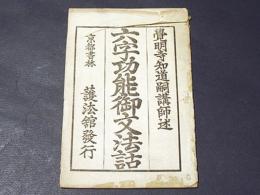 覺明寺知道嗣講師述
六字功能御文法話
京都書林
護法館發行